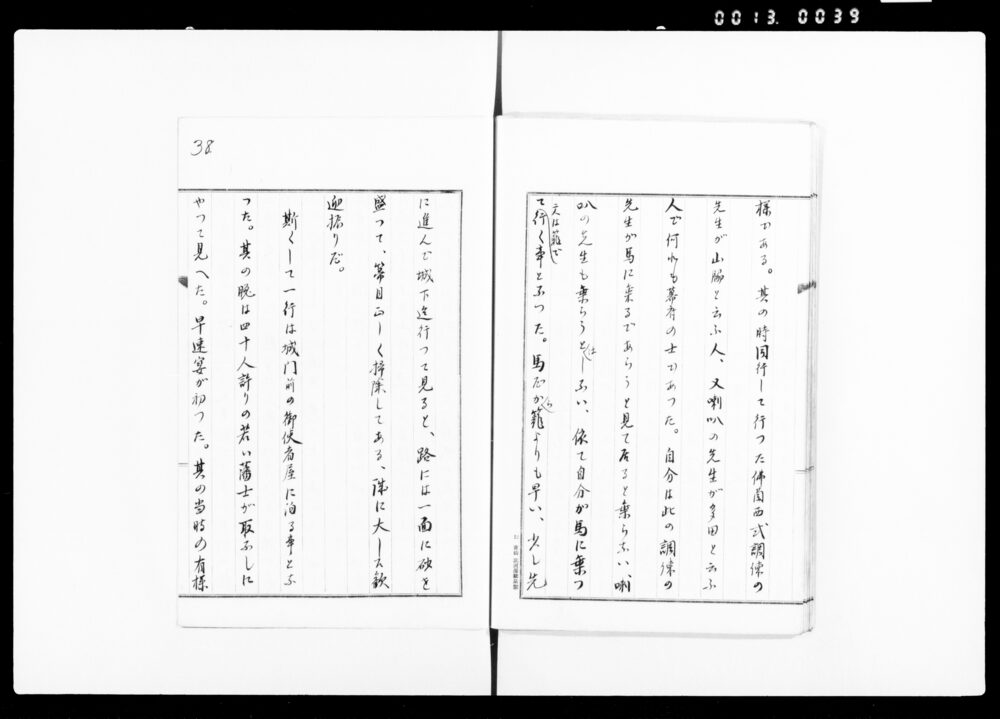 0013.0039
様である。其の時同行して行つた佛蘭西式調練の
先生が山脇と云ふ人、又喇叭の先生が多田と云ふ
人で何れも幕府の士であつた。自分は此の調練の
先生が馬に乗るであらうと見て居ると乗らない、喇
叭の先生も乗らうとはしない、依て自分が馬に乗つ
又は籠で
て行く事となつた。馬だから籠よりも早い、少し先
38
に進んで城下迄行つて見ると、路には一面に砂を
盛つて、箒目正しく掃除してある、誠に大した歓
迎振りだ。
斯くして一行は城門前の御使者屋に泊る事とな
つた。其の晩は四十人許りの若い藩士が取なしに
やつて見へた。早速宴が初つた。其の当時の有様